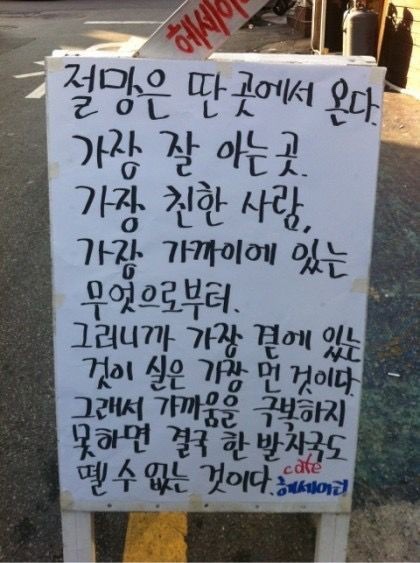 헤세이티
절망은 딴 곳에서 온다.
가장 잘 아는 곳.
가장 친한 사람,
가장 가까이에 있는
무엇으로부터.
그러니까 가장 곁에 있는
것이 실은 가장 먼 것이다.
그래서 가까움을 극복하지
못하면 결국 한 발자국도
뗄 수 없는 것이다.
cafe
헤세이티